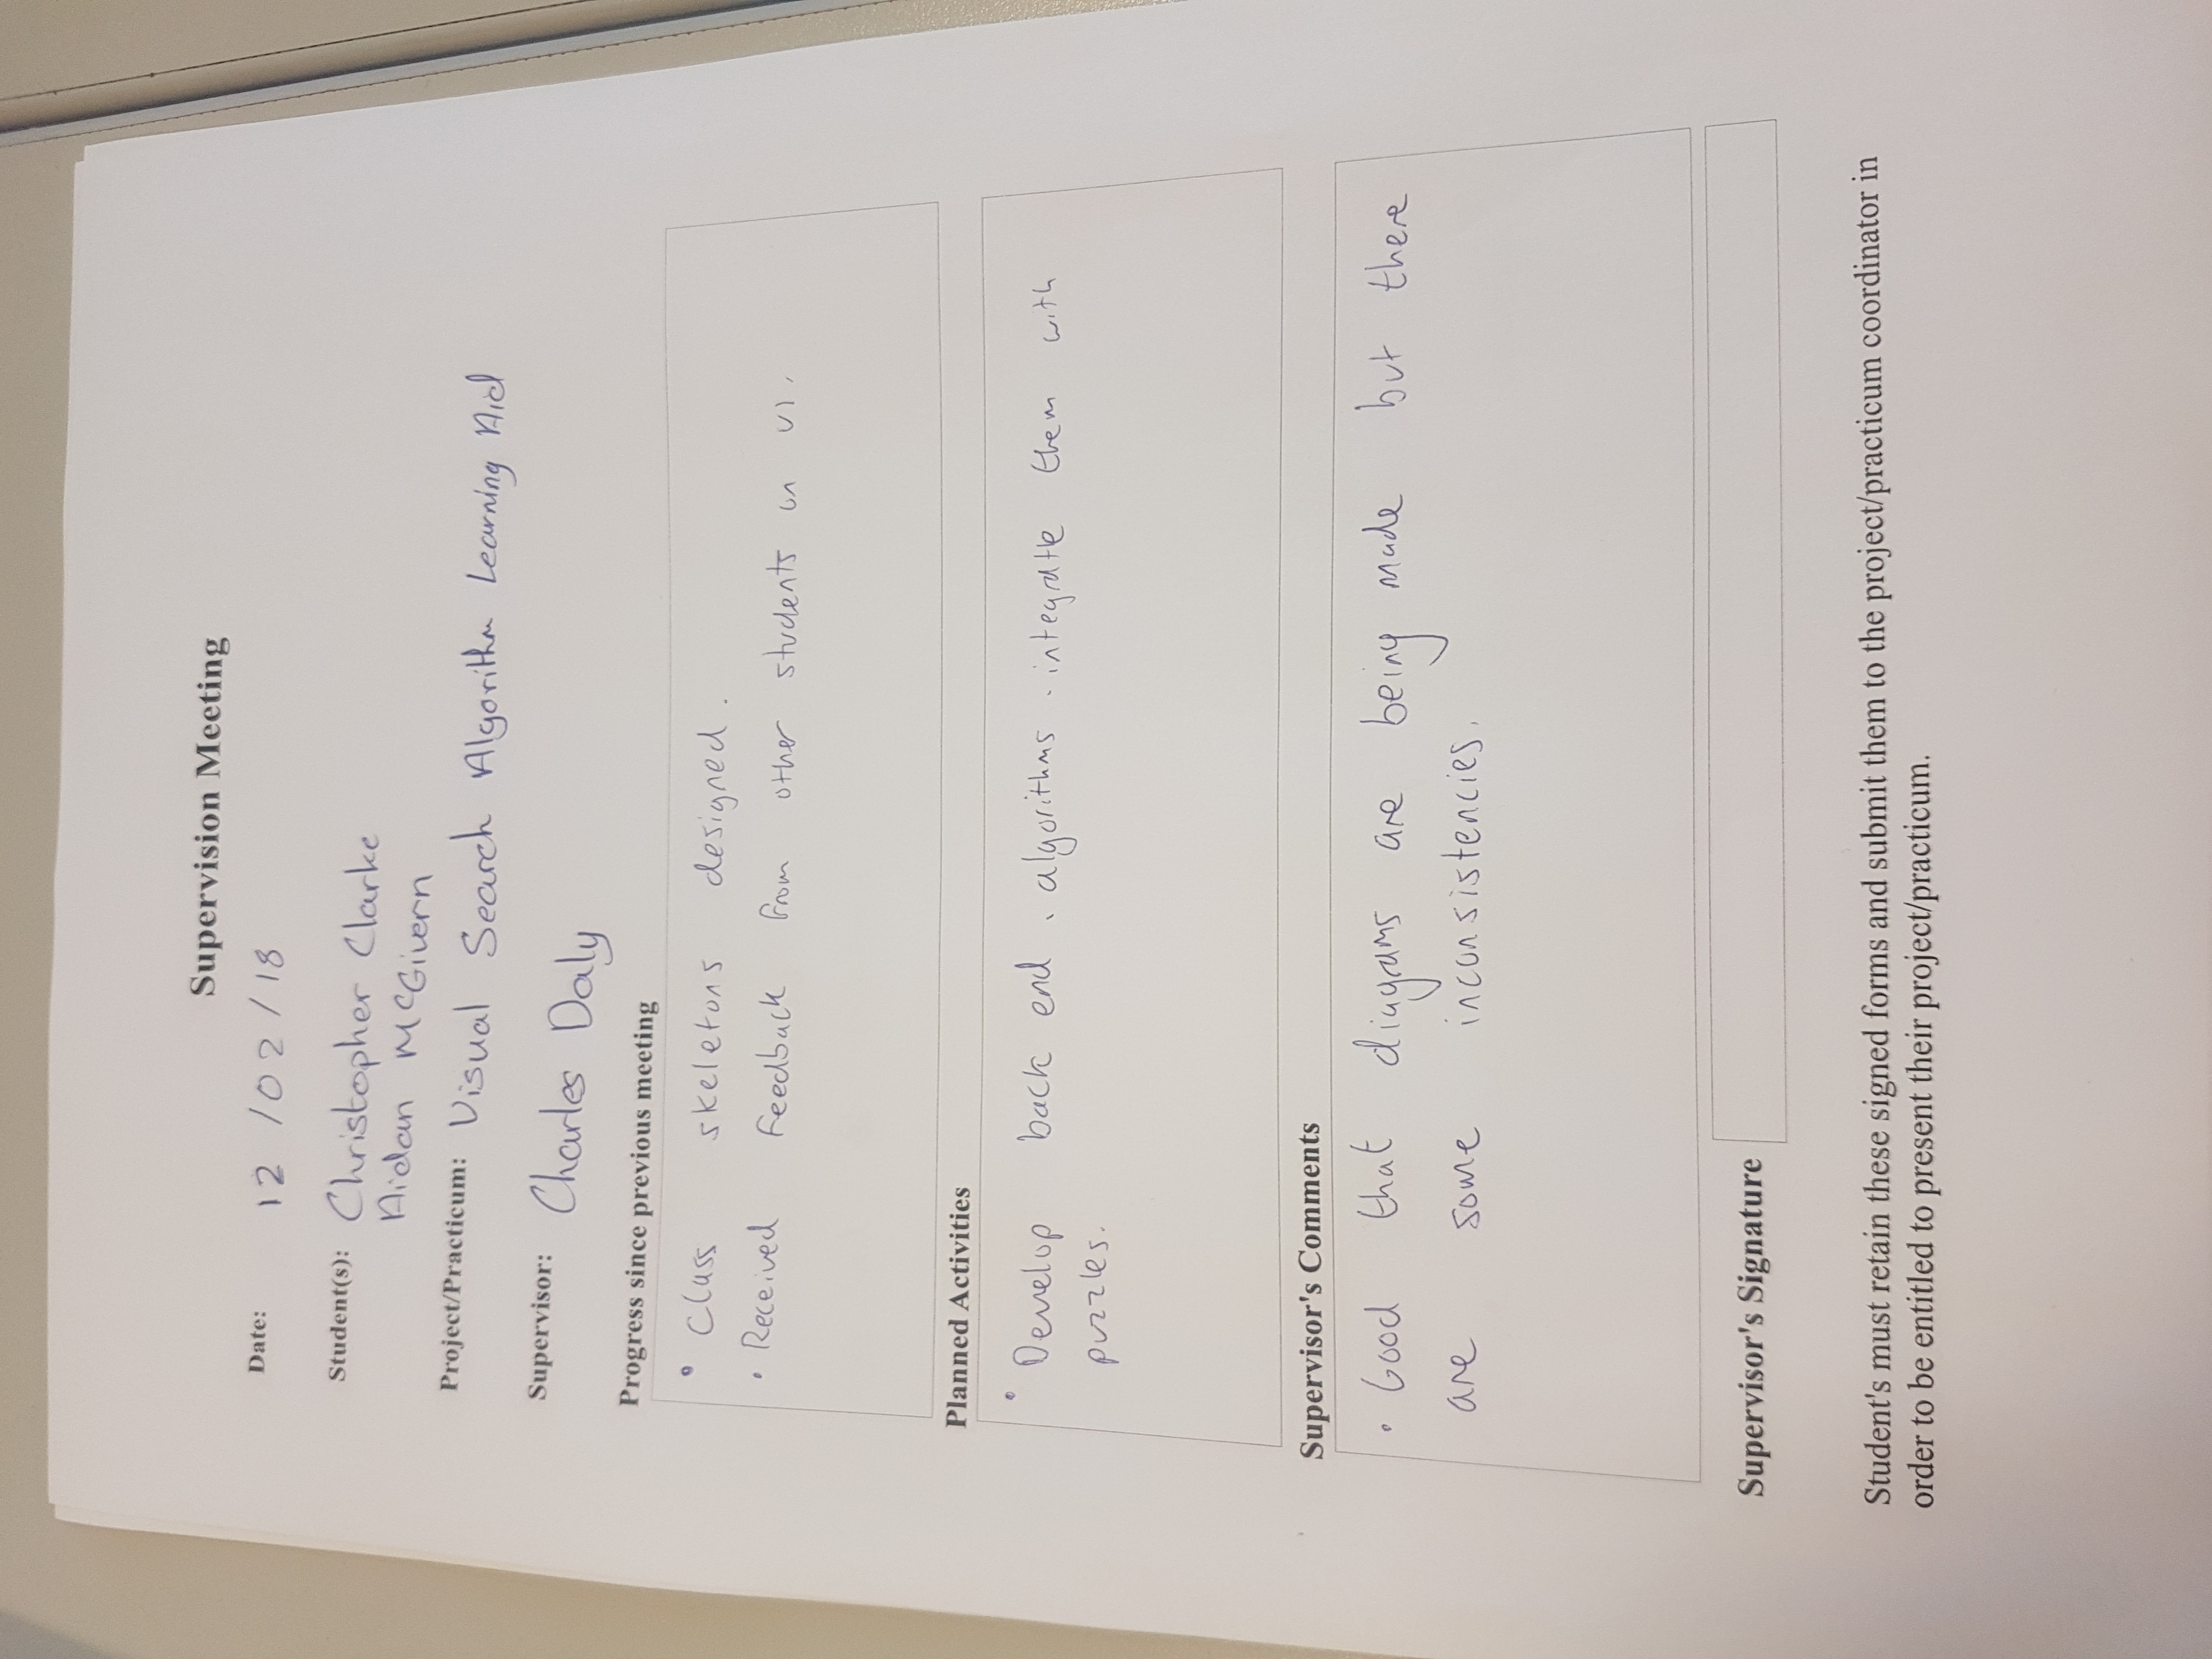 Supervision Meeting
Date: 12 /02/18
Student(s): Christopher Clarke
Aidan McGivern
Project/Practicum: Visual Search Algorithm Learning Aid
Supervisor: Charles Daly
Progress since previous meeting
• Class skeletons designed.
• Received feedback from other students on UI.
Planned Activities
• Develop back end . algorithms . integrate them with
puzzles.
Supervisor's Comments
• Good that diagrams are being made but there
are some inconsistencies.
Supervisor's Signature
Student's must retain these signed forms and submit them to the project/practicum coordinator in
order to be entitled to present their project/practicum.